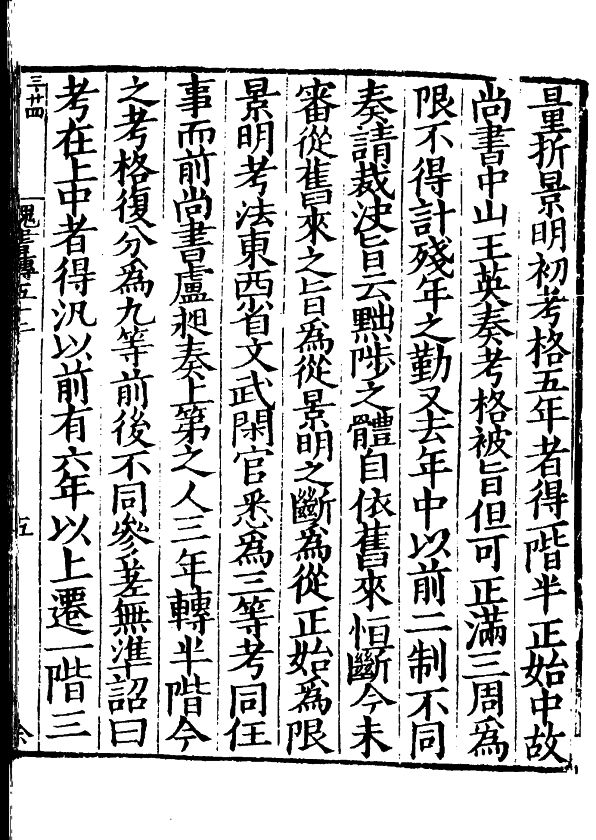 量折景明初考格五年者得一階半正始中故
尚書中山王英奏考格被旨但可正滿三周爲
限不得計殘年之勤又去年中以前二制不同
奏請裁决旨云黜陟之體自依舊來恒斷今未
審從舊來之旨爲從景明之斷爲從正始爲限
景明考法東西省文武閑官悉爲三等考同任
事而前尚書盧昶奏上第之人三年轉半階今
之考格復分爲九等前後不同參差無準詔曰
考在上中者得汎以前有六年以上遷一階三
三廿四
魏書傳五十二
五